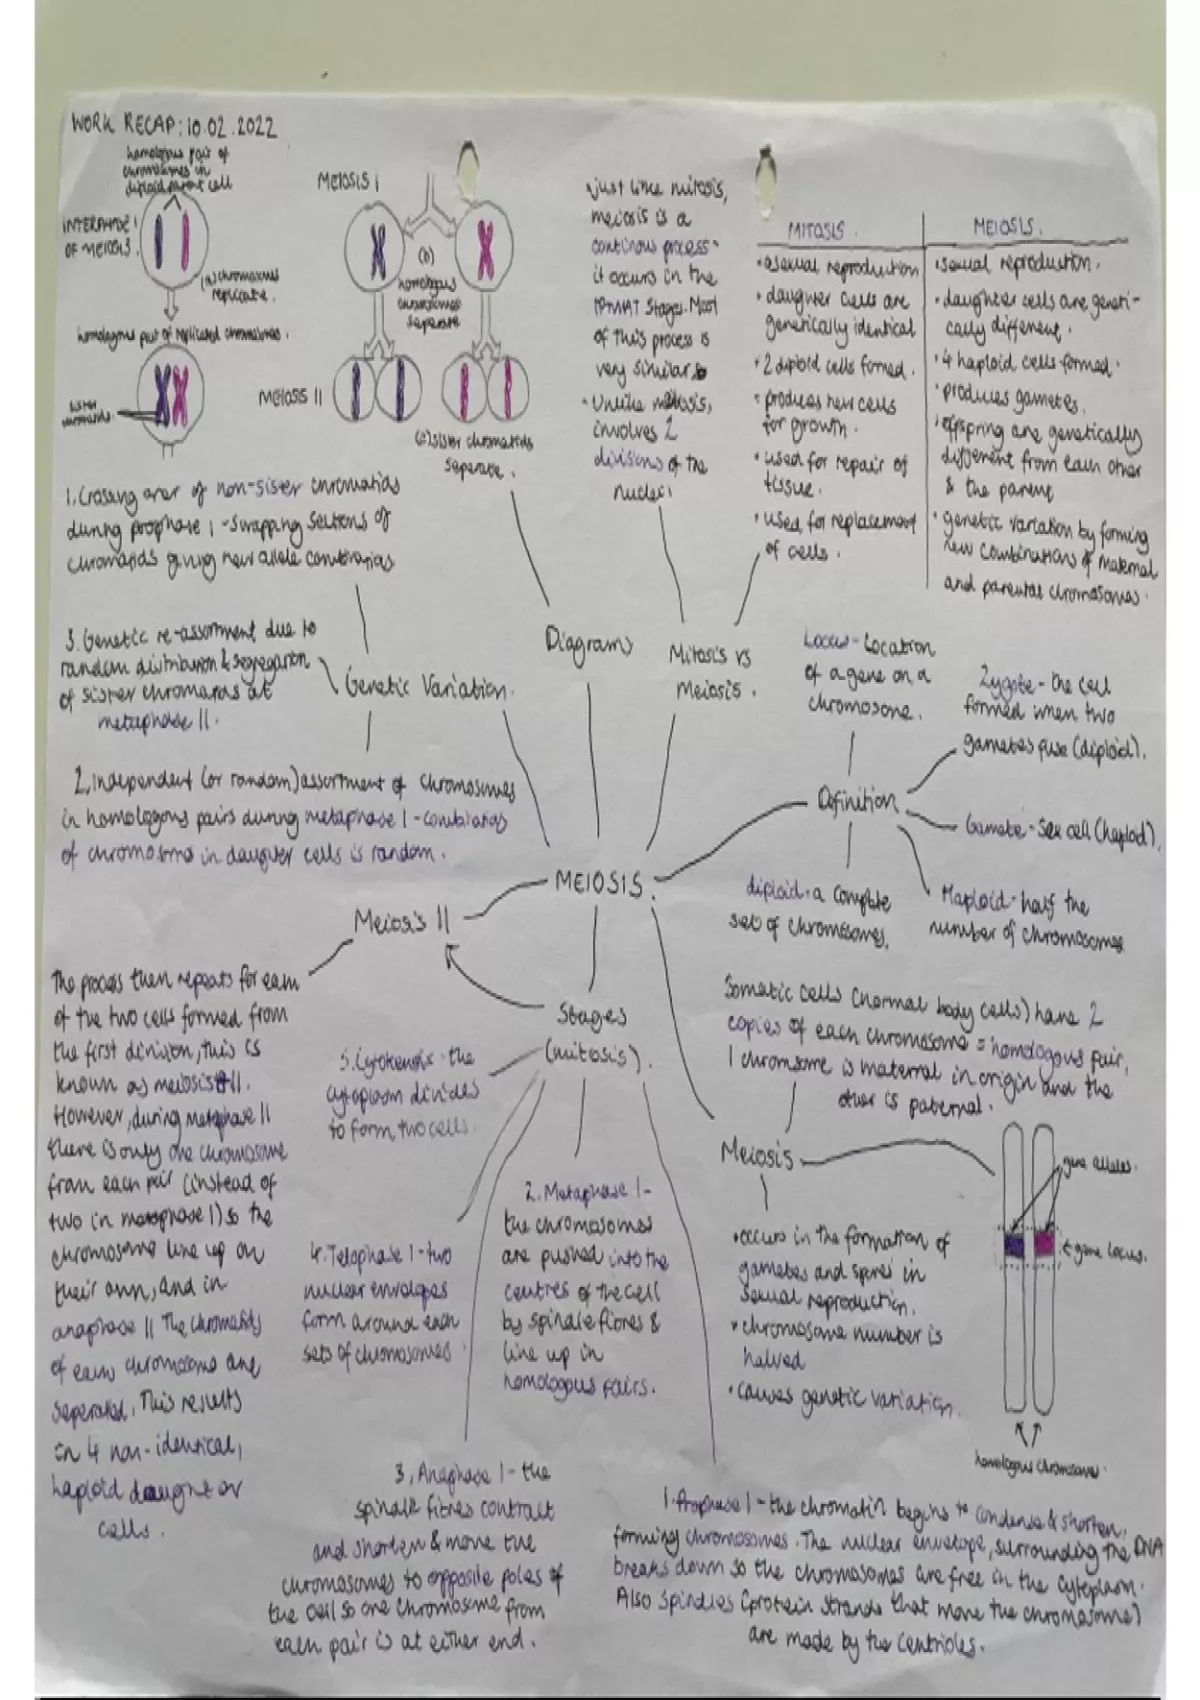 WORK RECAP: 10.02.2022
homologus pair of
chromosomes in
diploid parent cell
INTERPHASE
OF MEIOSIS.
(a) chromosomes
replicate.
homologous pair of replicated chromosomes.
sister
chromatids
MEIOSIS I
(b)
homologous
chromosomes
separate
MEIOSIS II
(c) sister chromatids
seperate.
Diagrams
• just like mitosis,
meiosis is a
continous process
it occurs in the
IPMAT stages. Most
of this process is
very similar
• Unlike mitosis,
involves 2
divisions of the
nuclei
Mitosis vs
Meiosis.
MITOSIS.
• asexual reproduction
• daughter cells are
genetically identical
• 2 diploid cells formed.
• produces new cells
for growth.
• used for repair of
tissue.
• used for replacement
of cells.
MEIOSIS.
• sexual reproduction.
• daughter cells are geneti-
cally different.
• 4 haploid cells formed.
• produces gametes.
• offspring are genetically
different from each other
& the parent
• genetic variation by forming
new combinations of maternal
and parental chromosomes.
1. Crossing over of non-sister chromatids
during prophase 1 - swapping sections of
chromatids giving new allele combinations
3. Genetic re-assortment due to
random distribution & segregation
of sister chromatids at
metaphase II.
Genetic Variation.
2. Independent (or random) assortment of chromosomes
in homologous pairs during metaphase 1 - combinations
of chromosomes in daughter cells is random.
MEIOSIS.
Locus - Location
of a gene on a
chromosone.
Zygote - the cell
formed when two
gametes fuse (diploid).
Definition
Gamete - Sex cell (haploid).
diploid - a complete
set of chromosomes.
Haploid - half the
number of chromosomes
Meiosis II
The process then repeats for each
of the two cells formed from
the first division, this is
known as meiosis II.
However, during metaphase II
there is only one chromosome
from each pair (instead of
two in metaphase 1) so the
chromosomes line up on
their own, and in
anaphase II the chromatids
of each chromosome are
seperated. This results
in 4 non-identical,
haploid daughter
cells.
Stages
(mitosis).
5. Cytokenisis - the
cytoplasm divides
to form two cells.
4. Telophase 1 - two
nuclear envelopes
form around each
sets of chromosomes.
2. Metaphase 1 -
the chromosomes
are pushed into the
centres of the cell
by spindle fibres &
line up in
homologous pairs.
3. Anaphase 1 - the
spindle fibres contract
and shorten & move the
chromosomes to opposite poles of
the cell so one chromosome from
each pair is at either end.
1. Prophase 1 - the chromatin begins to condense & shorten,
forming chromosomes. The nuclear envelope, surrounding the DNA
breaks down so the chromosomes are free in the cytoplasm.
Also spindles (protein strands that move the chromosome)
are made by the centrioles.
Somatic cells (normal body cells) have 2
copies of each chromosome = homologous pair,
1 chromsome is maternal in origin and the
other is paternal.
Meiosis
• occurs in the formation of
gametes and spores in
sexual reproduction.
• chromosome number is
halved
• causes genetic variation.
gene alleles.
gene locus.
homologous chromosomes.